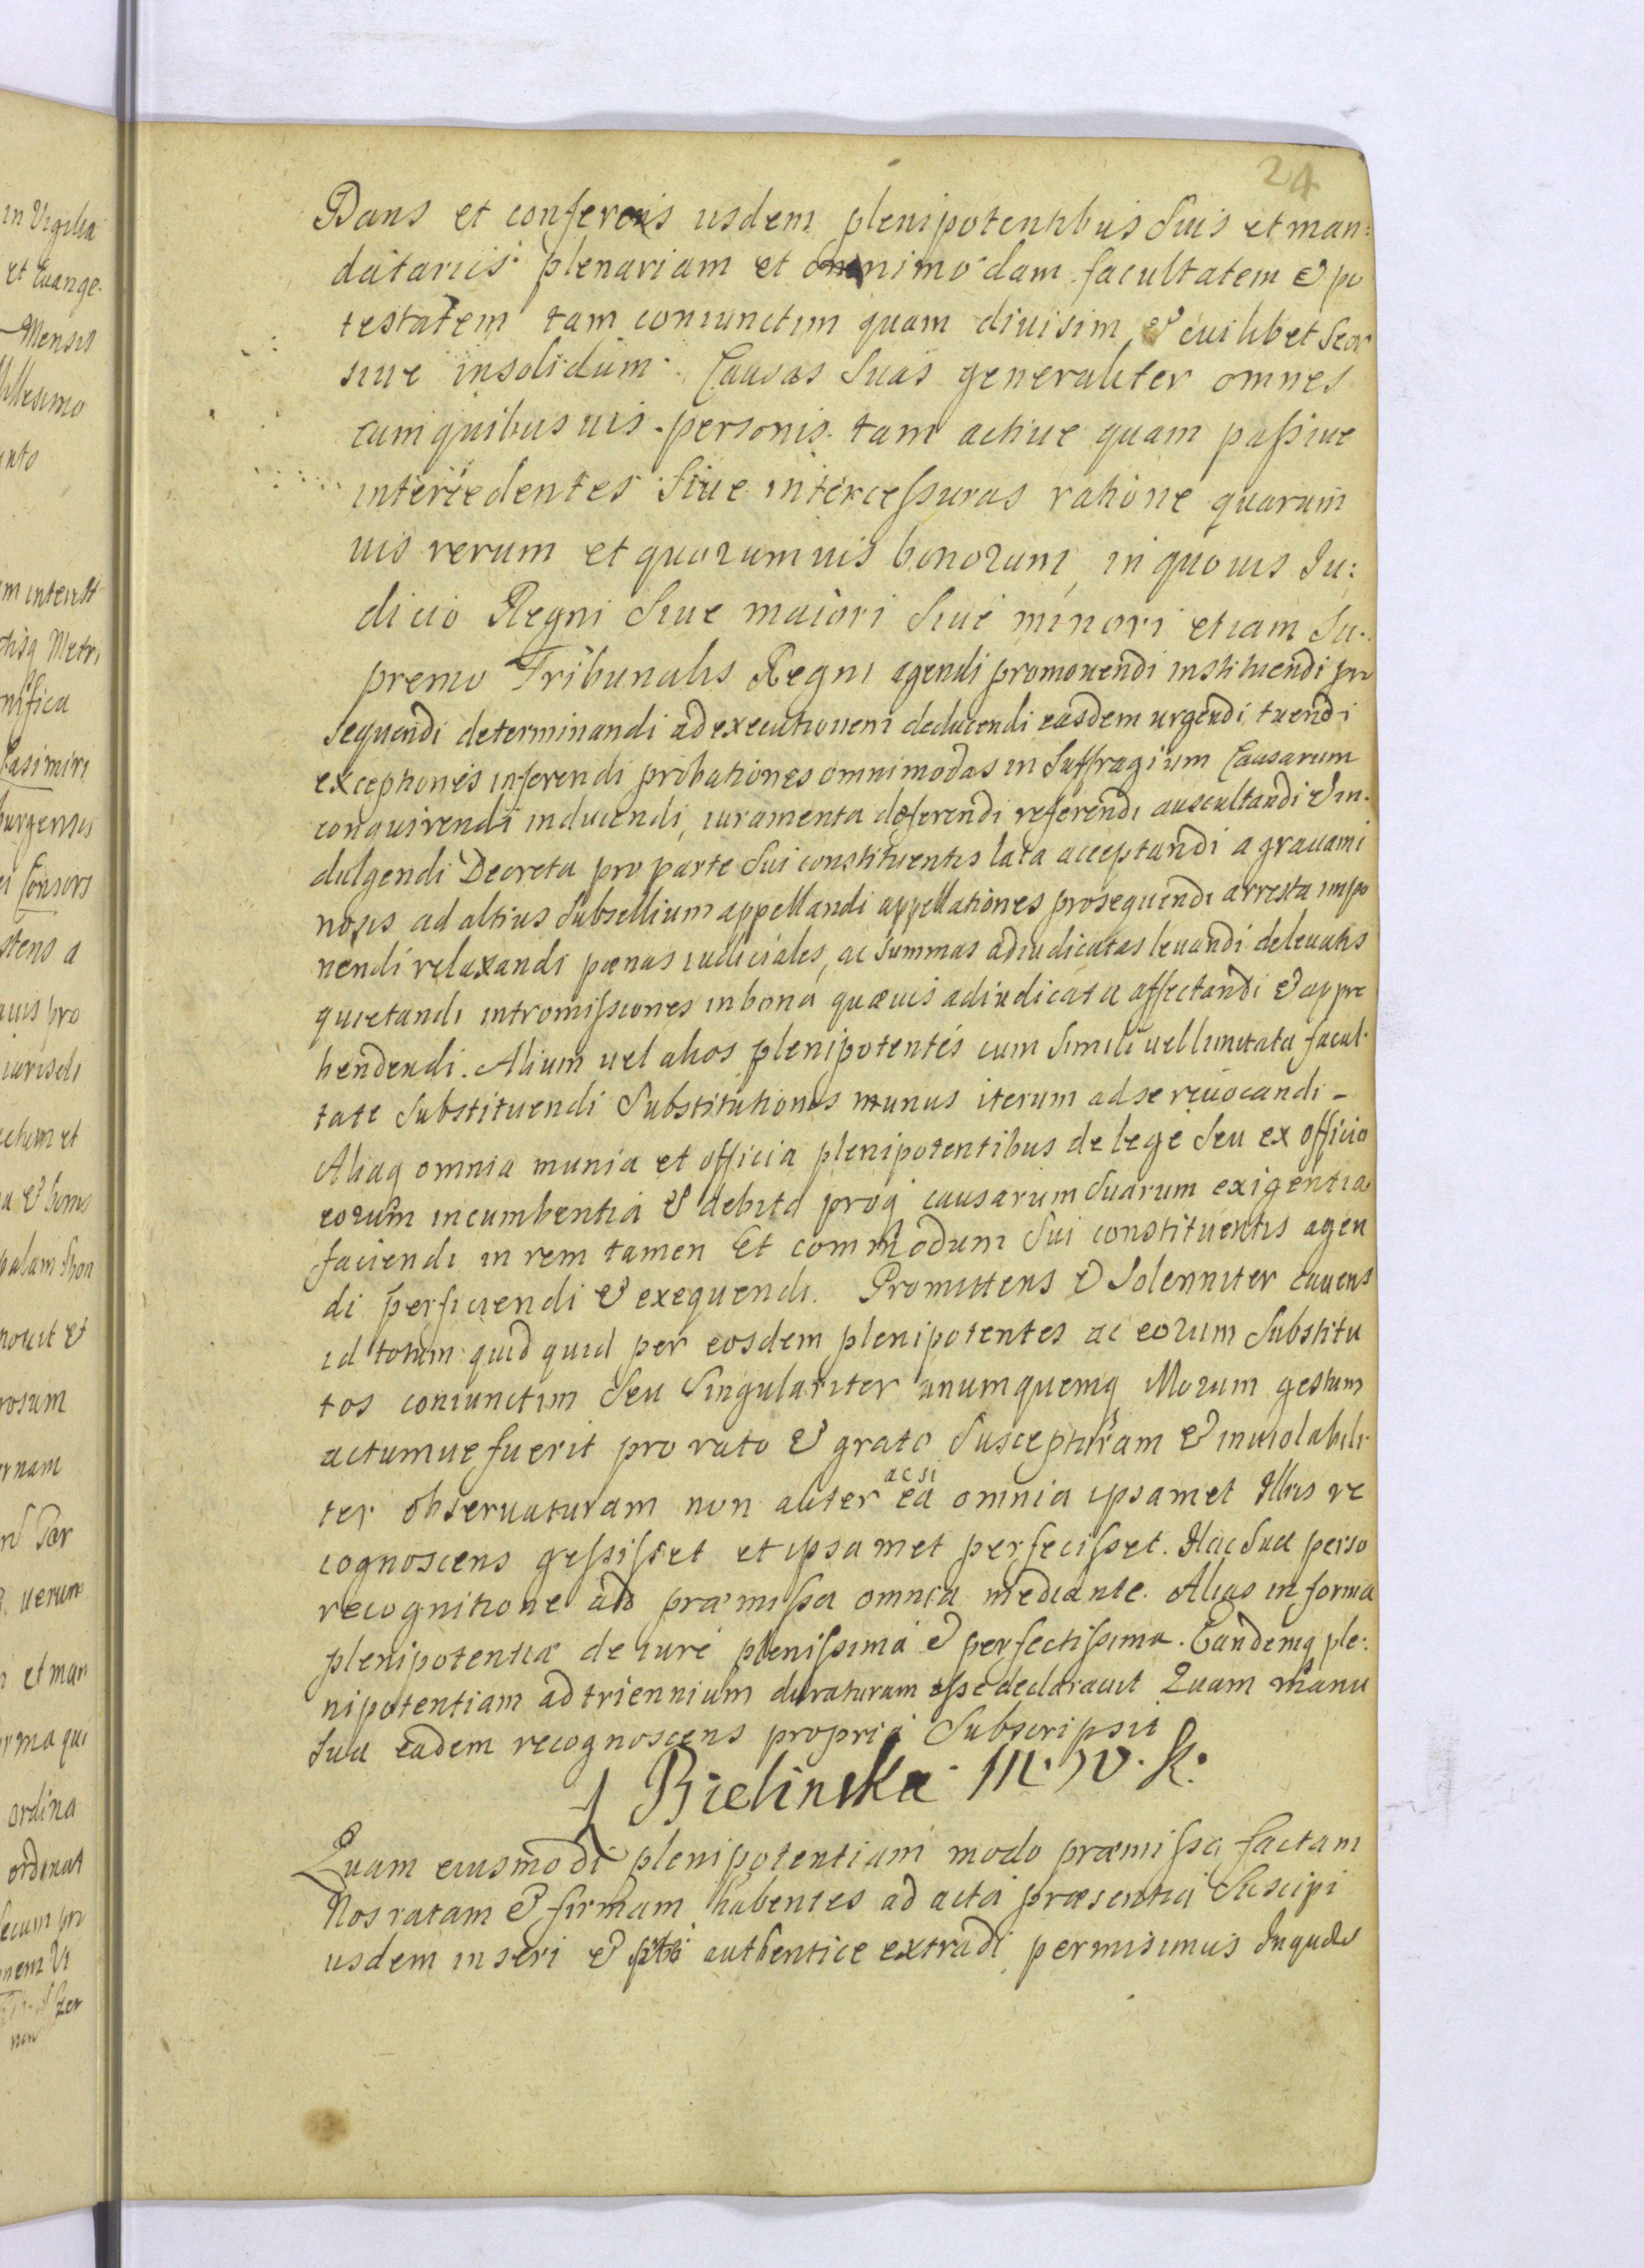 24
Dans et conferens iisdem plenipotentibus Suis et man:
datariis plenariam et omnimodam facultatem & po
testatem tam coniunctim quam diuisim & cuilibet Seor
siue insolidum. Causas Suas generaliter omnes
cum quibusuis personis tam actiue quam passiue
intercedentes Siue intercessuras ratione quarum
uis rerum et quorumuis bonorum in quouis Iu:
dicio Regni Siue maiori Siue minori etiam Su:
premo Tribunalis Regni agendi promouendi instituendi pro
sequendi determinandi ad executionem deducendi easdem urgendi tuendi
exceptiones inferendi probationes omnimodas in Suffragium Causarum
conquirendi inducendi, iuramenta deferendi referendi auscultandi & in
dulgendi Decreta pro parte Sui constituentis lata acceptandi a grauami
nosis ad altius Subsellium appellandi appellationes prosequendi arresta impo
nendi relaxandi pœnas iudiciales, ac Summas adiudicatas leuandi deleuatis
quietandi intromissiones in bona quæuis adiudicata affectandi & appre
hendendi. Alium uel alios plenipotentes cum Simili uel limitata facul
tate Substituendi Substitutionis munus iterum ad se reuocandi -
Aliaq omnia munia et officia plenipotentibus de lege Seu ex officio
eorum incumbentia & debita proq causarum Suarum exigentia
faciendi in rem tamen Et commodum Sui constituentis agen
di perficiendi & exequendi. Promittens & Solenniter cauens
id totum quidquid per eosdem plenipotentes ac eorum Substitu
tos coniunctim Seu Singulariter unumquemq Morum gestum
actumue fuerit pro rato & grato Suscepturam & inuiolabili
ter obseruaturam non aliter acsi ea omnia ipsamet Illris re
cognoscens gessisset et ipsamet perfecisset. Hac Sua perso
recognitione ad præmissa omnia mediante. Alias in forma
plenipotentiæ de iure plenissima & perfectissima. Eandemq ple:
nipotentiam ad triennium duraturam esse declarauit Quam manu
Sua eadem recognoscens propria Subscripsit
Bielinska M. W. K.
Quam eiusmodi plenipotentiam modo præmisso factam
Nos ratam & firmam habentes ad acta præsentia Suscipi
iisdem inseri & authentice extradi permisimus Inquoru